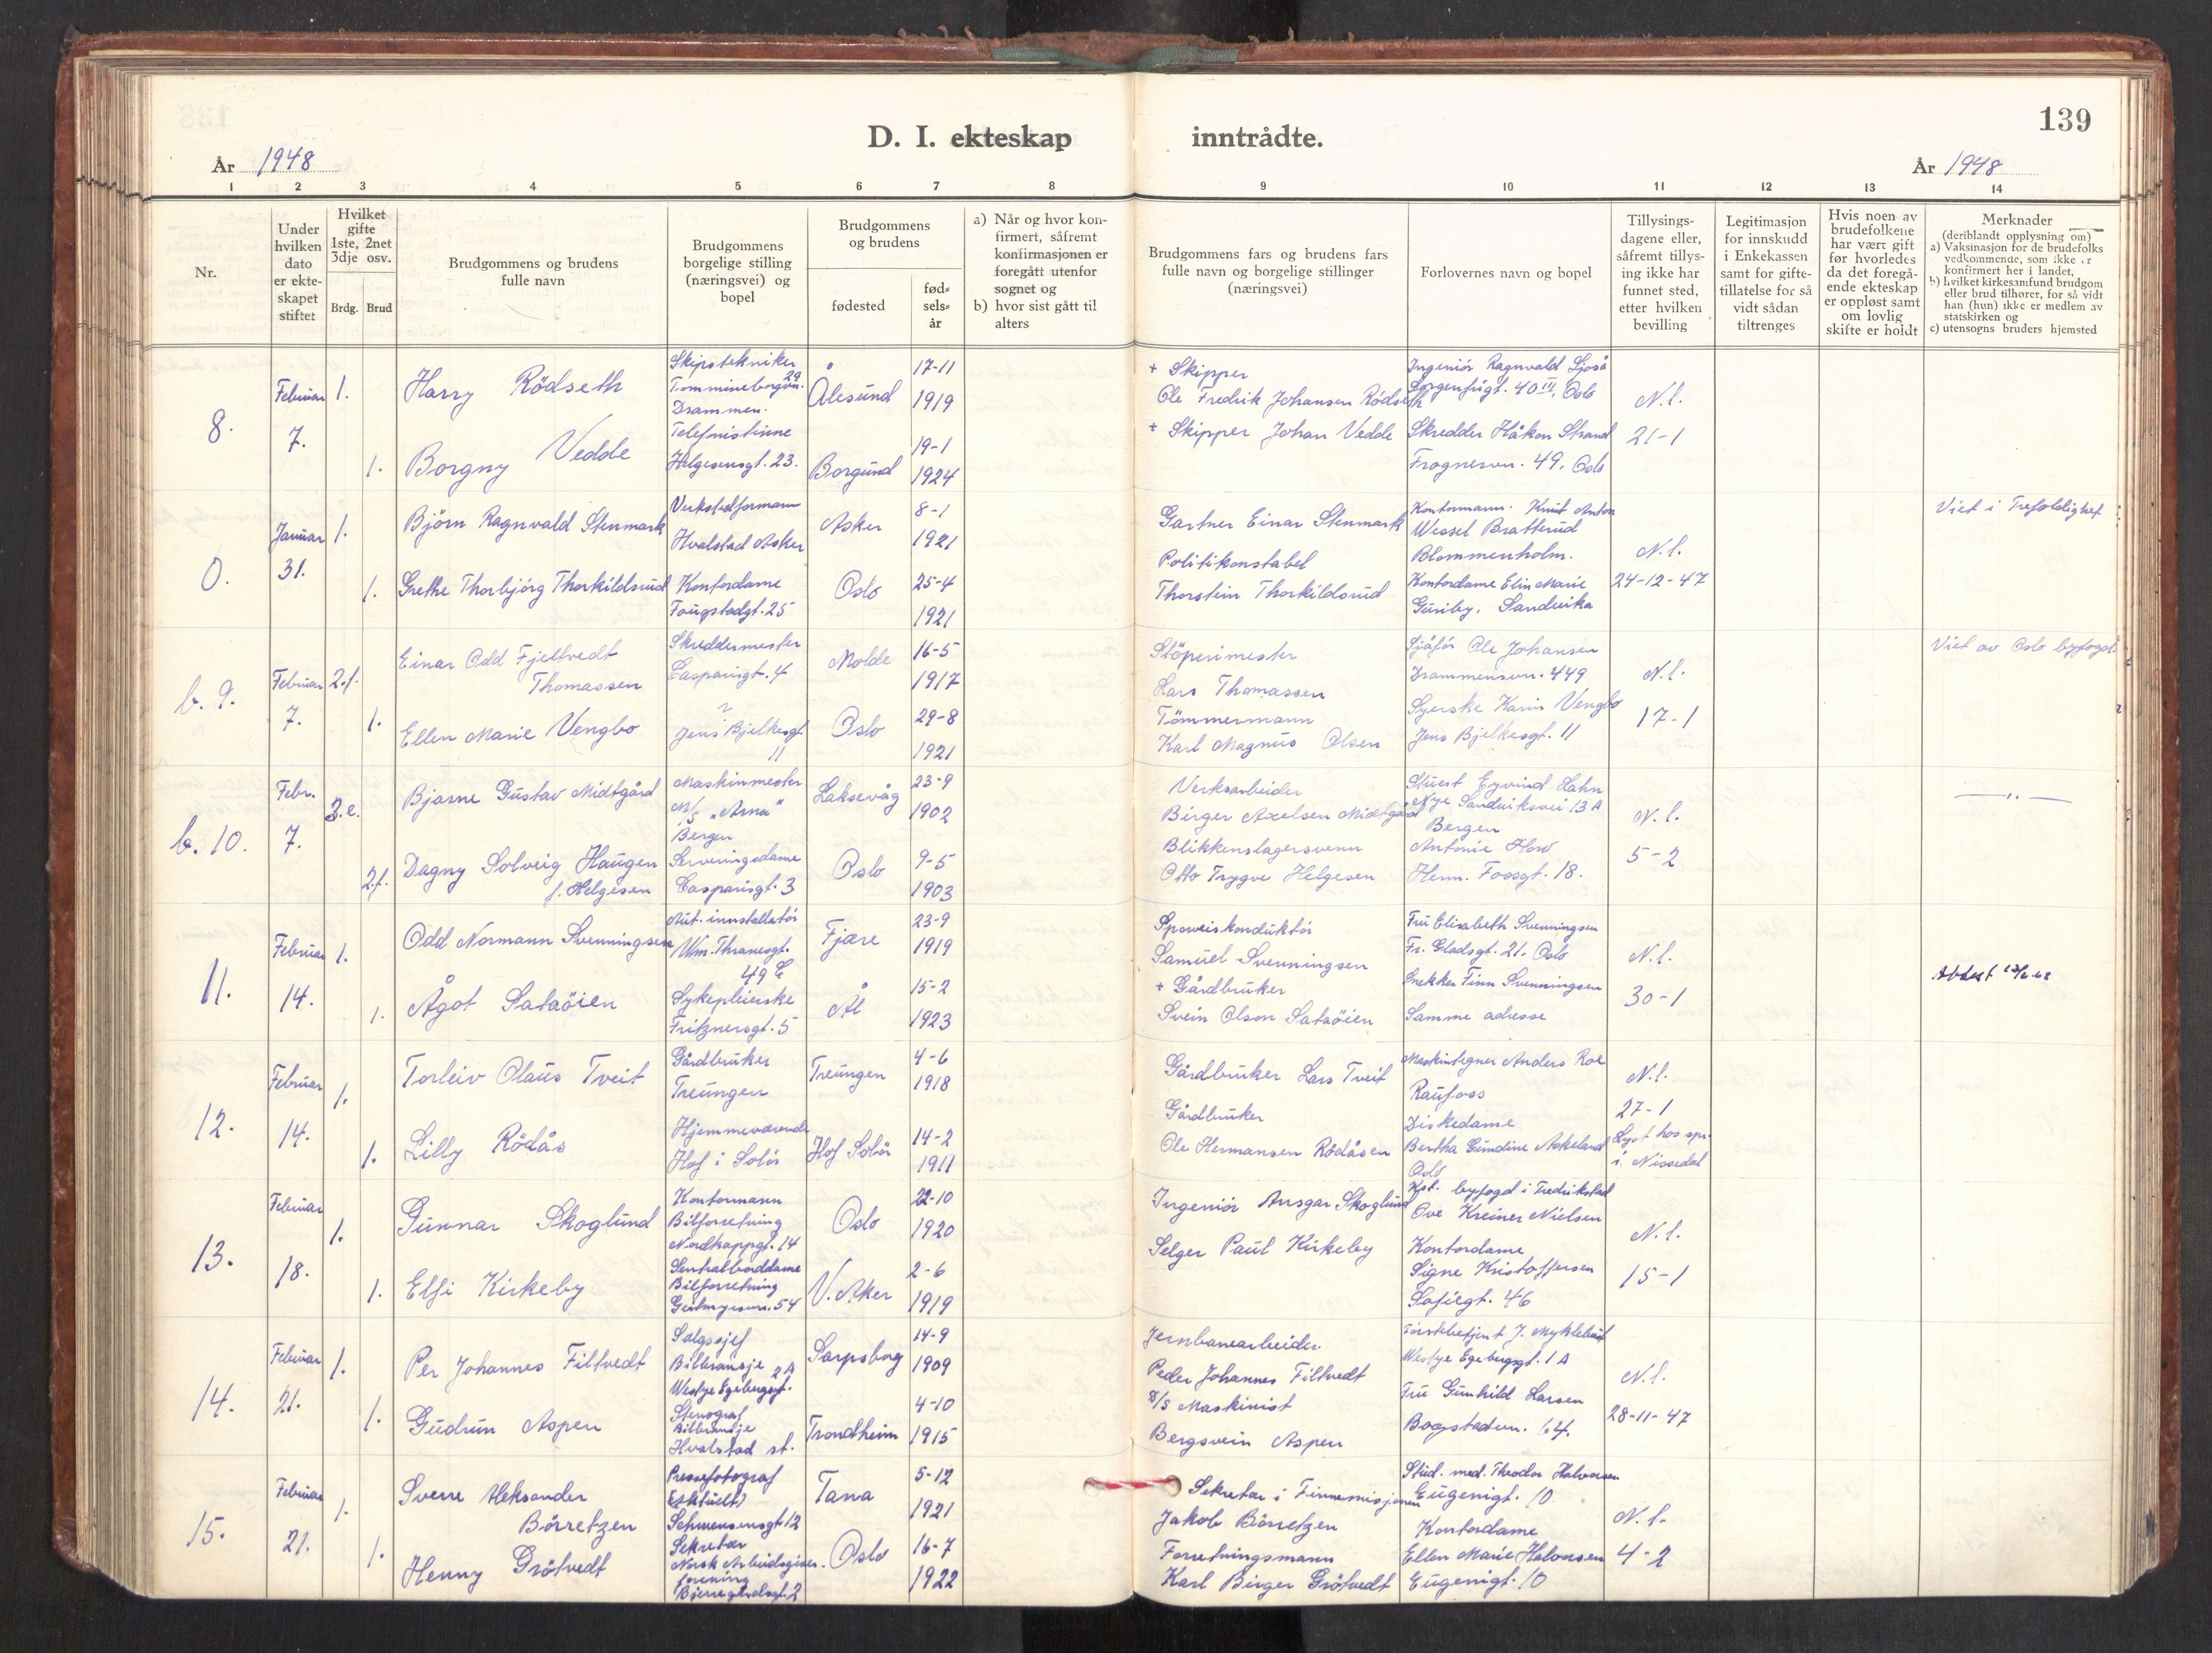 139
D. I. ekteskap inntrådte.
År 1948
År 1948
1 2 3 4 5 6 7 8 9 10 11 12 13 14
Nr.
Under hvilken dato er ekteskapet stiftet
Hvilket gifte 1ste, 2net 3dje osv.
Brdg. Brud
Brudgommens og brudens fulle navn
Brudgommens borgelige stilling (næringsvei) og bopel
Brudgommens og brudens
fødested
fødselsår
a) Når og hvor konfirmert, såfremt konfirmasjonen er foregått utenfor sognet og
b) hvor sist gått til alters
Brudgommens fars og brudens fars fulle navn og borgelige stillinger (næringsvei)
Forlovernes navn og bopel
Tillysingsdagene eller, såfremt tillysing ikke har funnet sted, etter hvilken bevilling
Legitimasjon for innskudd i Enkekassen samt for giftetillatelse for så vidt sådan tiltrenges
Hvis noen av brudefolkene har vært gift før hvorledes da det foregående ekteskap er oppløst samt om lovlig skifte er holdt
Merknader
(deriblandt opplysning om)
a) Vaksinasjon for de brudefolks vedkommende, som ikke er konfirmert her i landet,
b) hvilket kirkesamfund brudgom eller brud tilhører, for så vidt han (hun) ikke er medlem av statskirken og
c) utensogns bruders hjemsted
8.
Februar 7.
1.
Harry Rödseth
Skipstekniker
29
Drammen.
Ålesund
17-11
1919
+ Skipper
Ole Fredrik Johansen Rödseth
Ingeniör Ragnvald Sjoså
Sorgenfrigt. 40 III, Oslo
N.l.
21-1
1.
Borgny Vedde
Telefonistinne
Helgesensgt. 23.
Borgund
19-1
1924
+ Skipper Johan Vedde
Skredder Håkon Strand
Frognervn. 49. Oslo
0.
Januar 31.
1.
Björn Ragnvald Stenmark
Verkstedformann
Hvalstad Asker
Asker
8-1
1921
Gartner Einar Stenmark
Kontormann. Knut Anton
Wessel Bratterud
Blommenholm.
N.l.
24-12-47
Viet i Trefoldighet
1.
Grethe Thorbjörg Thorkildsrud
Kontordame
Fougstadgt. 25
Oslo
25-4
1921
Politikonstabel
Thorstein Thorkildsrud
Kontordame Elin Marie
Guriby. Sandvika
b. 9.
Februar 7.
2.f.
Einar Odd Fjeltvedt
Thomassen
Skreddermester
Casparigt. 4
Molde
16-5
1917
Stöperimester
Lars Thomassen
Sjåför Ole Johansen
Drammensvn. 449
N.l.
17-1
Viet av Oslo byfogd
1.
Ellen Marie Vengbo
?
Jens Bjelkesgt.
11
Oslo
29-8
1921
Tömmermann
Karl Magnus Olsen
Syerske Karin Vengbo
Jens Bjelkesgt. 11
b. 10.
Febr. 7.
3.e.
Bjarne Gustav Midtgård
Maskinmester
M/S „Arna"
Bergen
Laksevåg
23-9
1902
Verksarbeider
Birger Axelsen Midtgård
Stuert Eyvind Hahn
Nye Sandviksvei 13 A
Bergen
N.l.
5-2
— " —
2.f.
Dagny Solveig Haugen
f. Helgesen
Serveringsdame
Casparisgt. 3
Oslo
9-5
1903
Blikkenslagersvenn
Otto Trygve Helgesen
Antonie How
Herm. Fossgt. 18.
11.
Februar 14.
1.
Odd Normann Svenningsen
Aut. innstallatör
Wm. Thranesgt.
Fjære
23-9
1919
Sporveiskonduktör
Samuel Svenningsen
Fru Elisabeth Svenningsen
Fr. Gladsgt. 21. Oslo
N.l.
30-1
1.
Ågot Sataöien
Sykepleierske
Fritznersgt. 5
Ål
15-2
1923
+ Gårdbruker
Svein Olson Sataöien
Snekker Finn Svenningsen
Samme adresse
12.
Februar 14.
1.
Torleiv Olaus Tveit
Gårdbruker
Treungen
Treungen
4-6
1918
Gårdbruker Lars Tveit
Maskintegner Anders Roe
Raufoss
N.l.
27-1
Lyst hos spr.
i Nissedal
1.
Lilly Rödås
Hjemmeværende
Hof i Solör
Hof Solör
14-2
1911
Gårdbruker
Ole Hermansen Rödåsen
Diskedame
Bertha Gundine Askeland
Oslo
13.
Februar 18.
1.
Gunnar Skoglund
Kontormann
Bilforretning
Nordkappgt. 14
Oslo
22-10
1920
Ingeniör Ansgar Skoglund
Kst. byfogd i Fredrikstad
Ove Kreiner Nielsen
N.l.
15-1
1.
Elfi Kirkeby
Sentralborddame
Bilforretning
V. Aker
2-6
1919
Selger Paul Kirkeby
Kontordame
Signe Kristoffersen
Sofiegt. 46
14.
Februar 21.
1.
Per Johannes Filtvedt
Salgssjef
Bilbransje
Westye Egebergsgt. 2A
Sarpsborg
14-9
1909
Jernbanearbeider
Peder Johannes Filtvedt
J. Myklebust
Westye Egebergsgt. 1 A
N.l.
28-11-47
1.
Gudrun Aspen
Stenograf
Bilbransje
Hvalstad st.
Trondheim
4-10
1915
D/S Maskinist
Bergsvein Aspen
Fru Gunhild Larsen
Bogstadvn. 64.
15.
Februar 21.
1.
Sverre Aleksander
Börretzen
Pressefotograf
(Aktuelt)
Schwensensgt 12
Tana
5-12
1921
Sekretær i Finnemisjonen
Jakob Börretzen
Stud. med. Theodor Halvorsen
Eugenigt. 10
N.l.
4-2
1.
Henny Grötvedt
Sekretær
Norsk Arbeidsgiver-
forening
Bjerregårdsgt. 2
Oslo
16-7
1922
Forretningsmann
Karl Birger Grötvedt
Kontordame
Ellen Marie Halvorsen
Eugenigt. 10